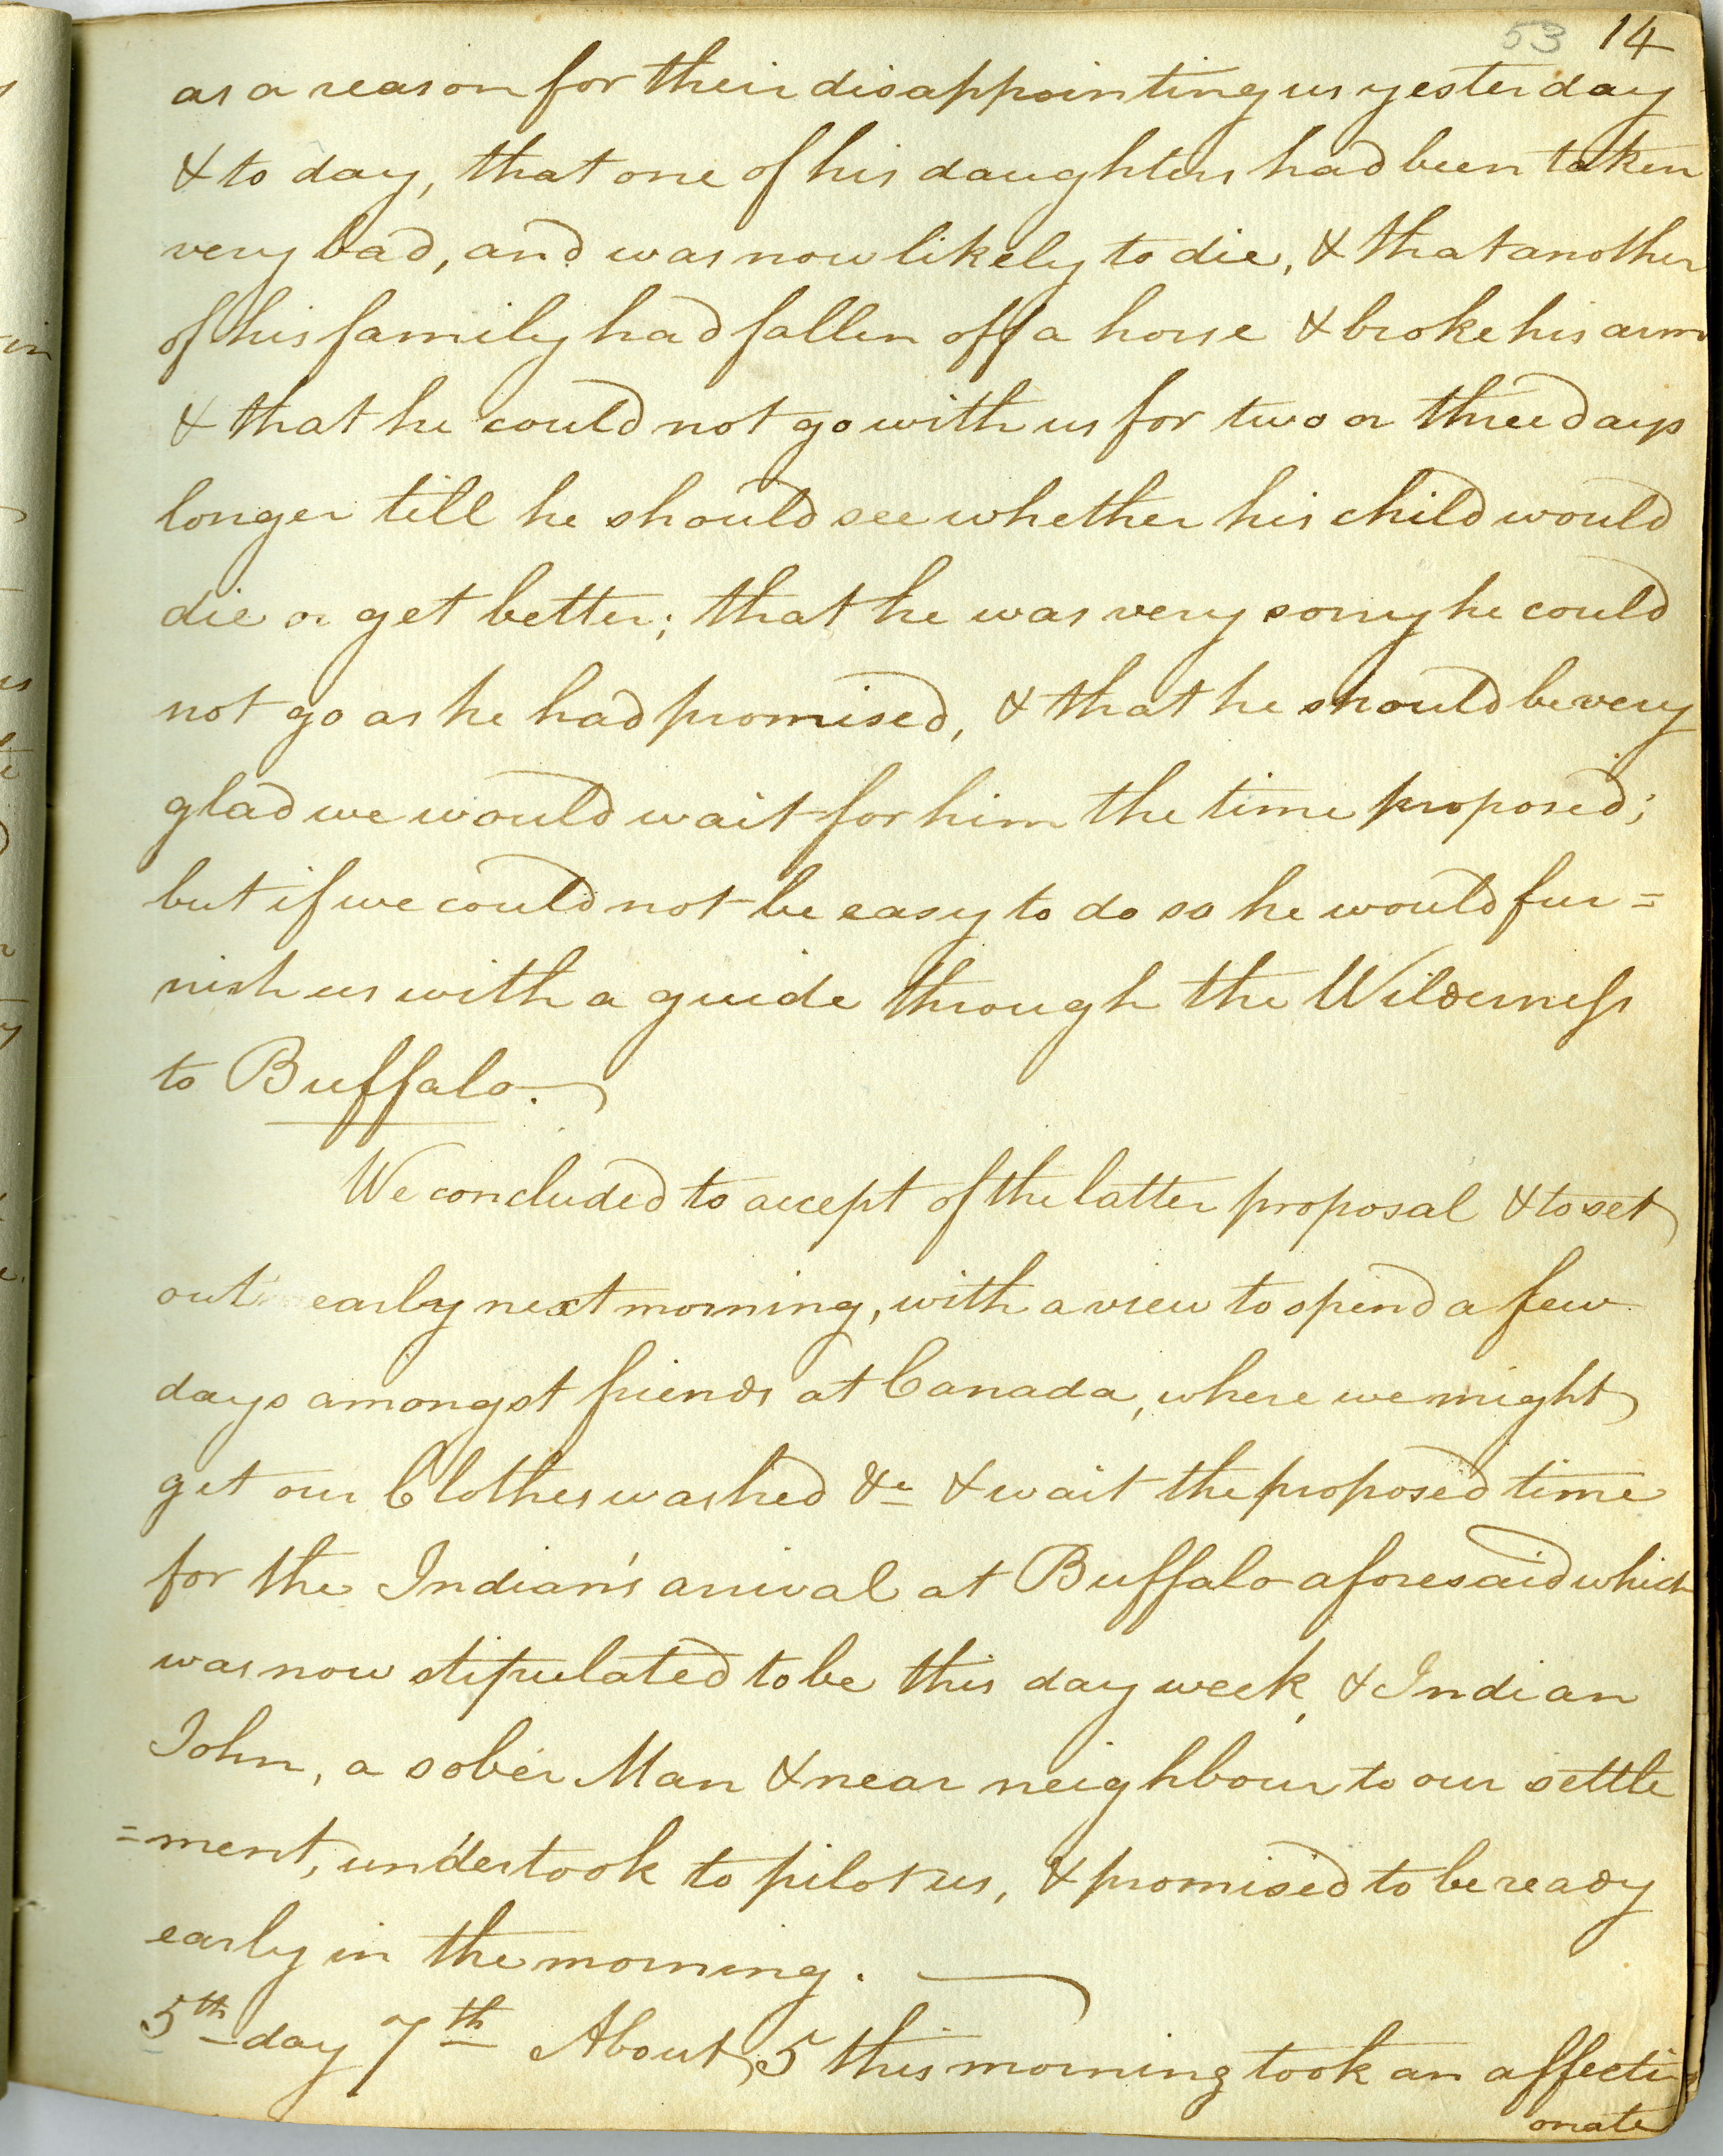 53 14
as a reason for their disappointing us yesterday
& to day, that one of his daughters had been taken
very bad, and was now likely to die, & that another
of his family had fallen off a horse & broke his arm
& that he could not go with us for two or three days
longer till he should see whether his child would
die or get better; that he was very sorry he could
not go as he had promised, & that he should be very
glad we would wait for him the time proposed;
but if we could not be easy to do so he would fur=
nish us with a guide through the Wilderness
to Buffalo.
We concluded to accept of the latter proposal & to set
out early next morning, with a view to spend a few
days amongst friends at Canada, where we might
get our Clothes washed &c & wait the proposed time
for the Indian's arrival at Buffalo aforesaid which
was now stipulated to be this day week, & Indian
John, a sober Man & near neighbour to our settle
=ment, undertook to pilot us, & promised to be ready
early in the morning.
5th day 7th About 5 this morning took an affecti
onate